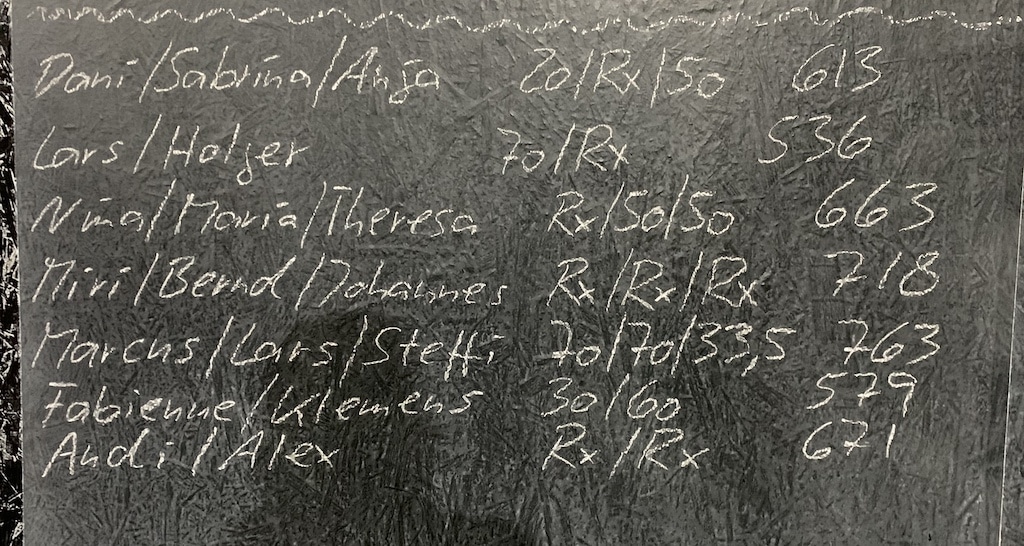 Dani/Sabrina/Anja 20/Rx/50 613
Lars/Holger 70/Rx 536
Nina/Maria/Theresa Rx/50/50 663
Miri/Bernd/Johannes Rx/Rx/Rx 718
Marcus/Lars/Steffi 70/70/33,5 763
Fabienne/Klemens 30/60 579
Andi/Alex Rx/Rx 671